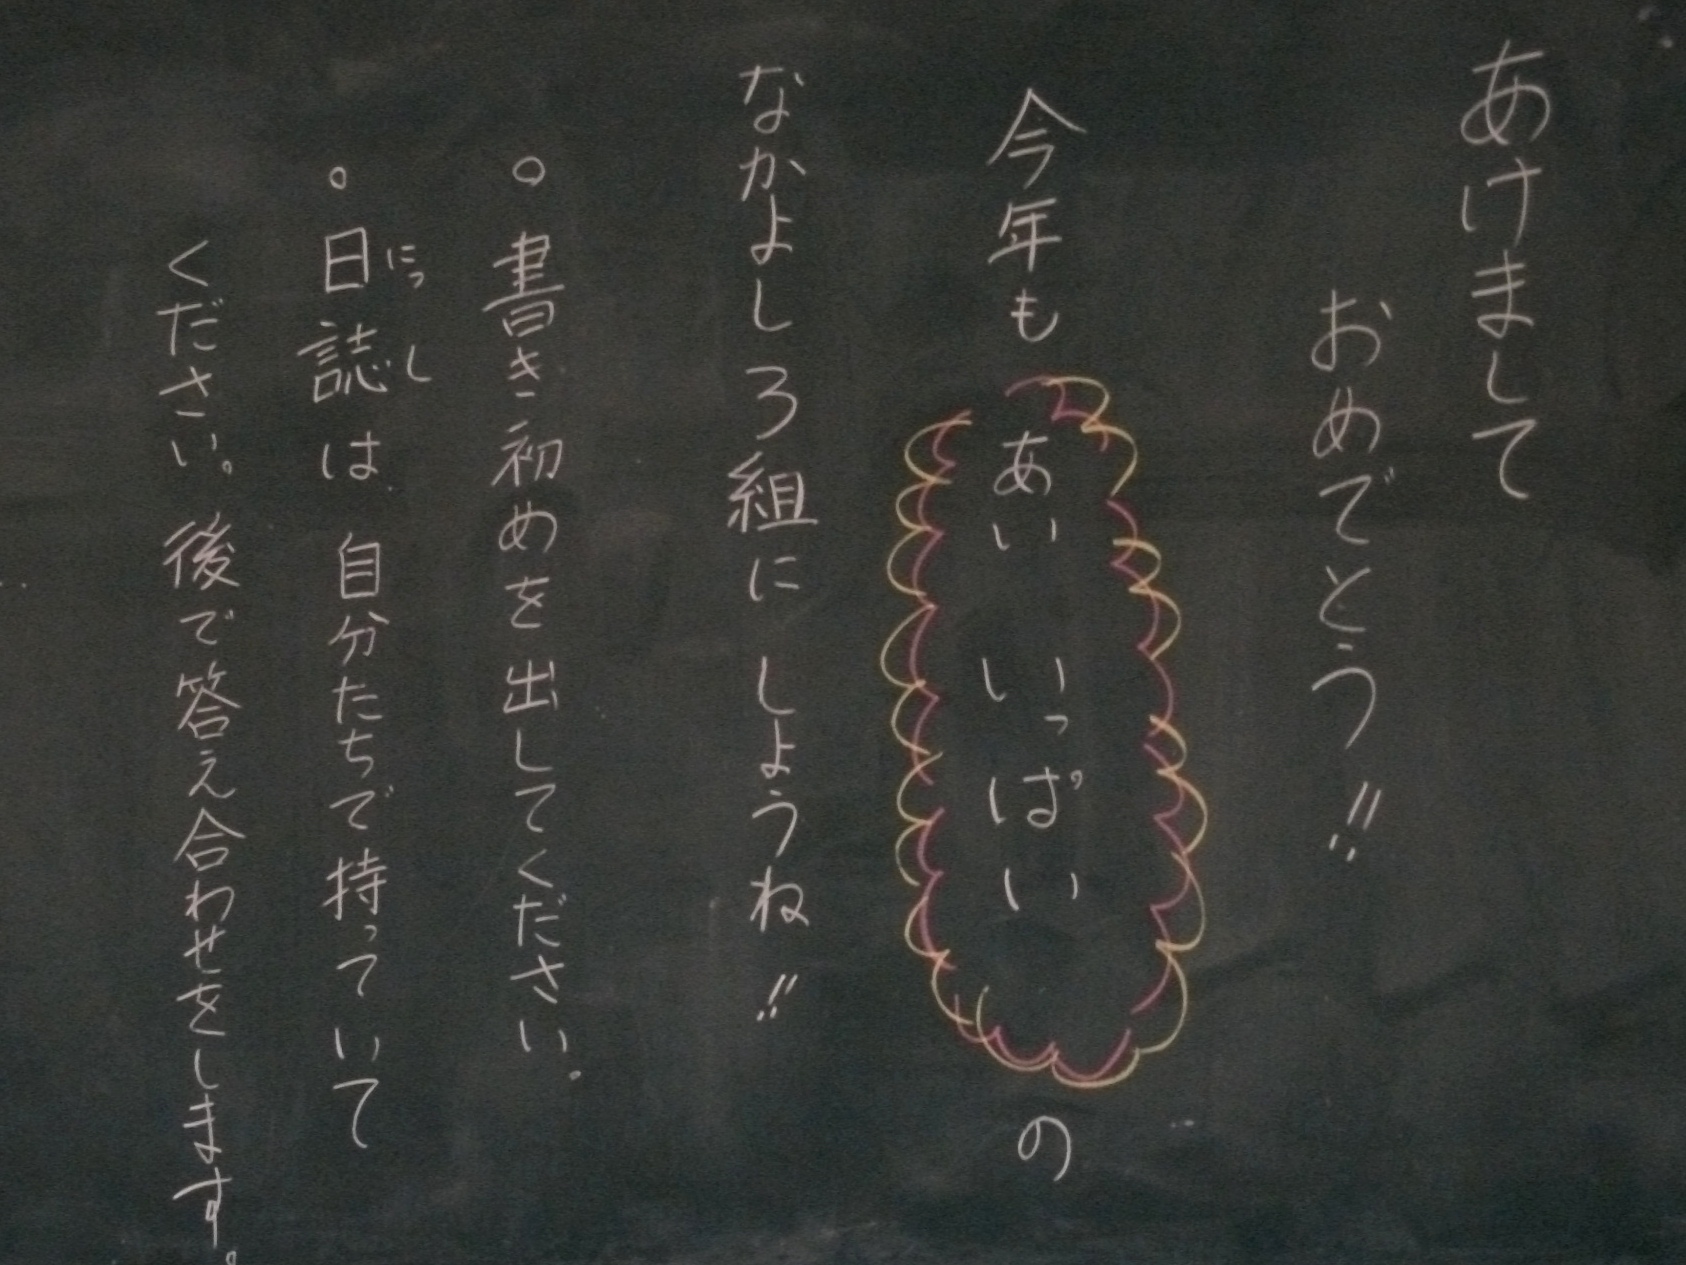 あけまして
おめでとう!!
今年も あい いっぱい の
なかよしろ組に しようね!!
○書き初めを出してください。
○日誌は 自分たちで持っていて
にっし
ください。後で答え合わせをします。